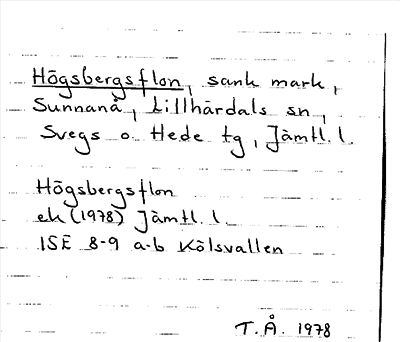 Högsbergsflon, sank mark,
Sunnanå, Lillhärdals sn,
Svegs o Hede tg, Jämtl. l.
Högsbergsflon
ek (1978) Jämtl. l.
15E 8-9 a-b Kölsvallen
T. Å. 1978